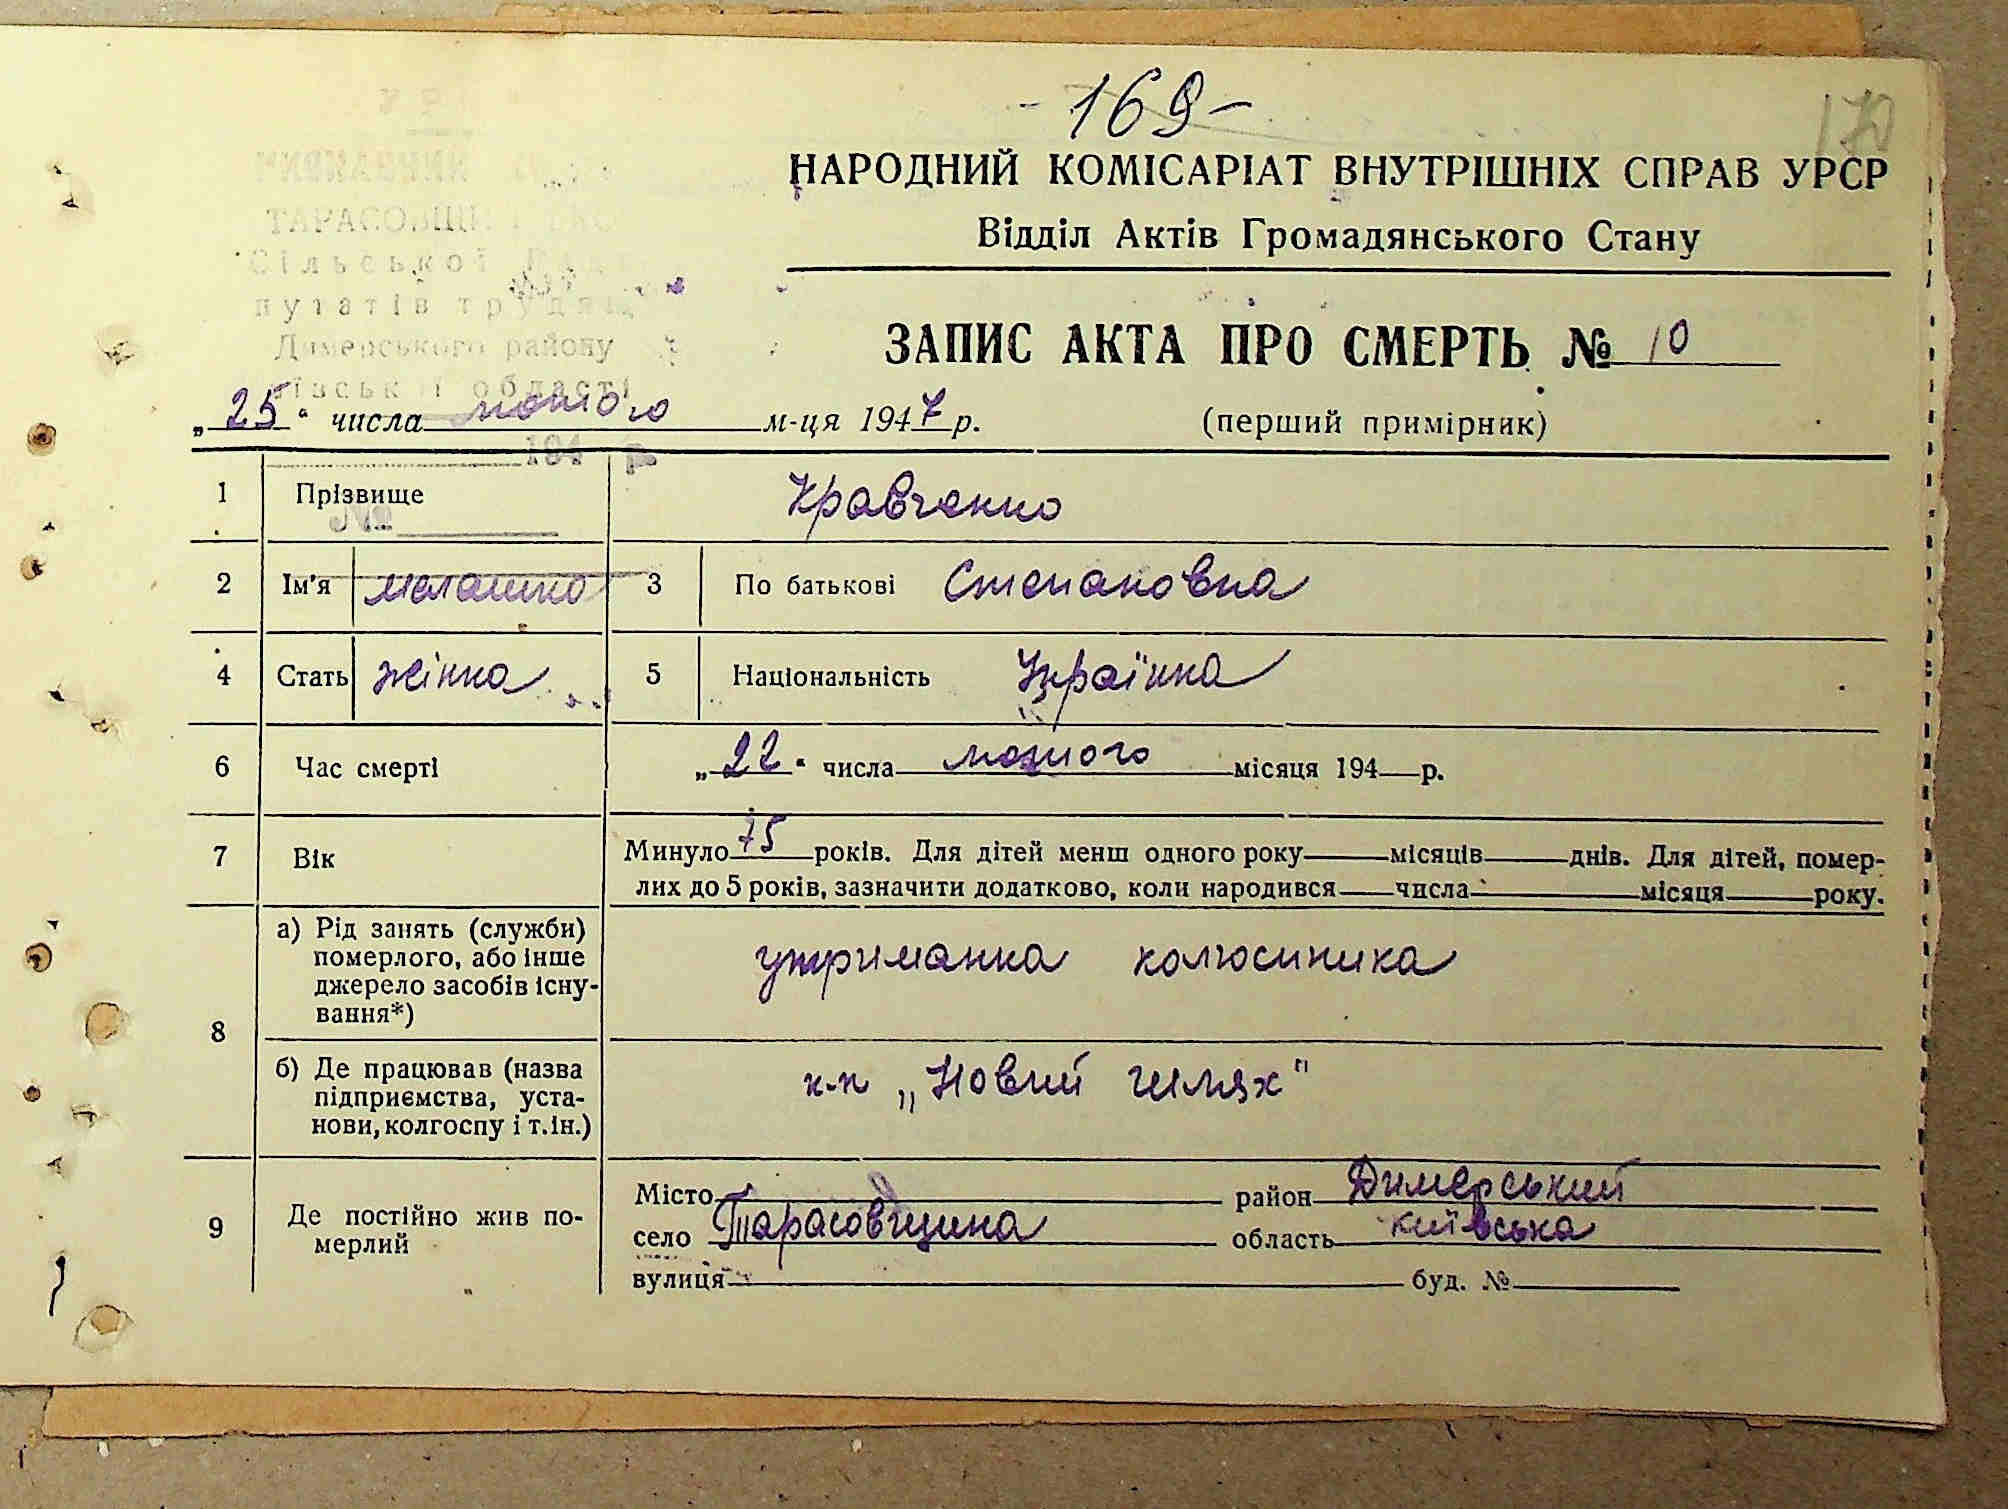 - 169 -
170
НАРОДНИЙ КОМІСАРІАТ ВНУТРІШНІХ СПРАВ УРСР
Відділ Актів Громадянського Стану
ТАРАСОВЩИ
Сільської
путатів трудящ
Димерського району
області
ЗАПИС АКТА ПРО СМЕРТЬ № 10
„25“ числа лютого м-ця 1947 р. (перший примірник)
194 р
1 Прізвище Кравченко
№
2 Ім'я мелашка 3 По батькові Степановна
4 Стать жінка 5 Національність Українка
6 Час смерті „22“ числа лютого місяця 194 р.
7 Вік Минуло 75 років. Для дітей менш одного року місяців днів. Для дітей, помер-
лих до 5 років, зазначити додатково, коли народився числа місяця року.
8 а) Рід занять (служби) померлого, або інше джерело засобів існу-вання*) утриманка колгоспника
б) Де працював (назва підприємства, уста-нови, колгоспу і т.ін.) к-п „Новий шлях"
9 Де постійно жив по-мерлий
Місто район Димерський
село Тарасовщина область київська
вулиця буд. №